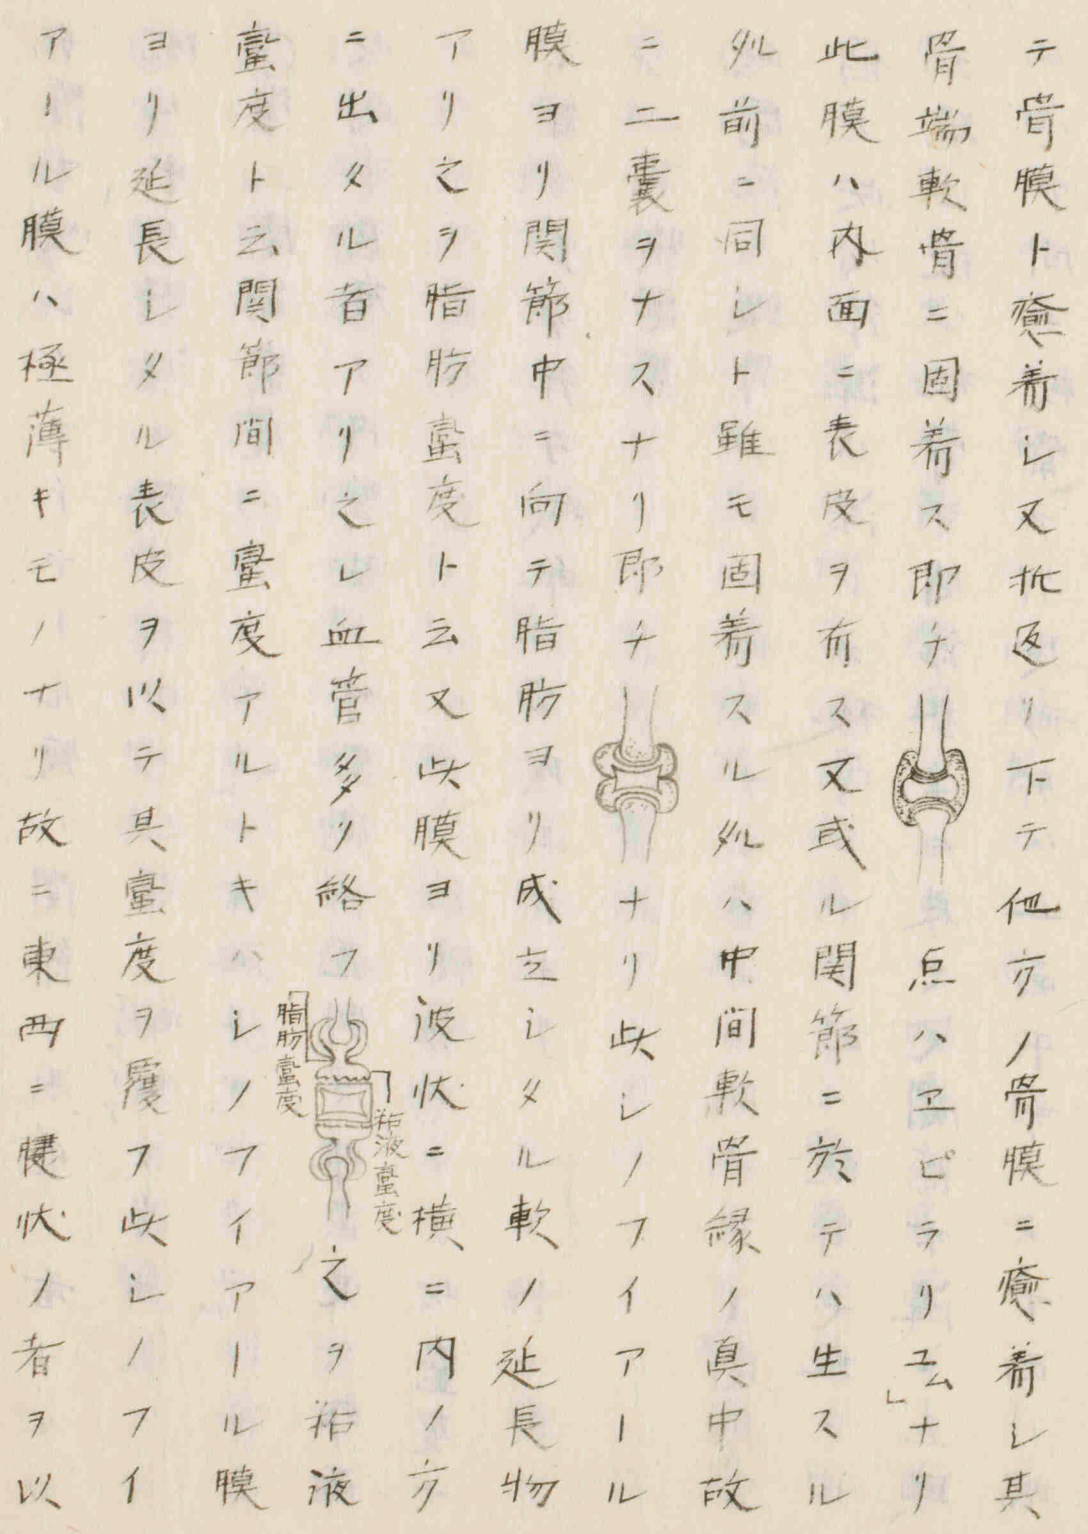 テ骨膜ト癒着シ又折返リ下テ他方ノ骨膜ニ癒着シ其
骨端軟骨ニ固着ス即チ点ハヱピラリユム」ナリ
此膜ハ内面ニ表皮ヲ有ス又或ル関節ニ於テハ生スル
処前ニ同シト雖モ固着スル処ハ中間軟骨縁ノ真中故
ニ二嚢ヲナスナリ即チナリ此シノフイアール
膜ヨリ関節中ニ向テ脂肪ヨリ成立シタル軟ノ延長物
アリ之ヲ脂肪蜑度ト云又此膜ヨリ波状ニ横ニ内ノ方
ニ出タル者アリ之レ血管多リ絡フ之ヲ粘液
脂肪蜑度
粘液蜑度
蜑度ト云関節間ニ蜑度アルトキハシノフイアール膜
ヨリ延長シタル表皮ヲ以テ具蜑度ヲ覆フ此シノフイ
アール膜ハ極薄キモノナリ故ニ東西ニ腱状ノ者ヲ以